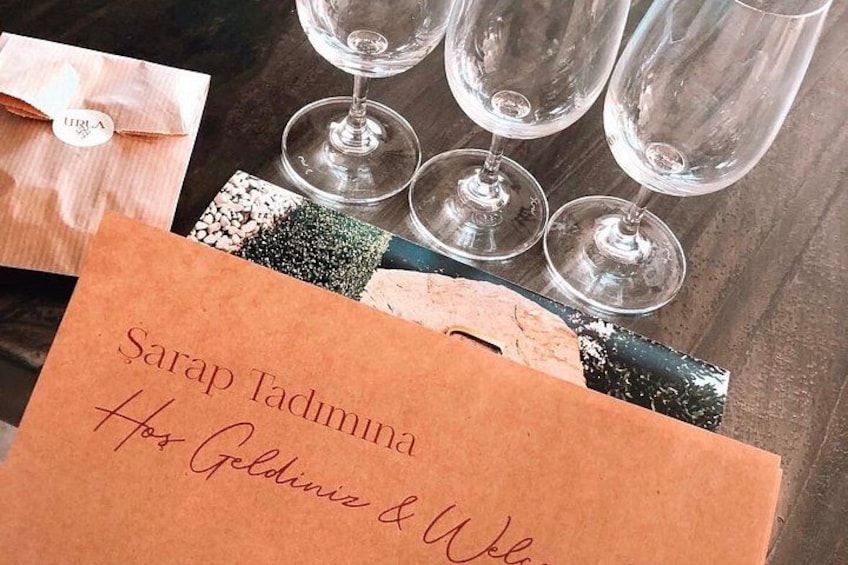 URLA
Şarap Tadımına
Hoş Geldiniz & Welc